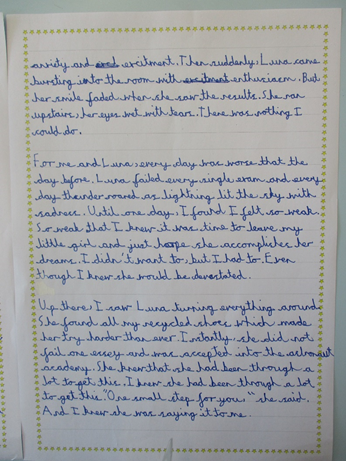 anxiety and excitment. Then suddenly, Luna came
bursting into the room with enthusiasm. But
her smile faded when she saw the results. She ran
upstairs, her eyes wet with tears. There was nothing I
could do.
For me and Luna, every day was worse that the
day before. Luna failed every single exam and every
day thunder roared as lightning lit the sky with
sadness. Until one day, I found I felt so weak.
So weak that I knew it was time to leave my
little girl and just hope she accomplishes her
dreams. I didn't want to, but I had to. Even
though I knew she would be devestated.
Up there, I saw Luna turning everything around.
She found all my recycled shoes which made
her try harder than ever. Instally, she did not
fail one essey and was accepted into the astronaut
academy. She knew that she had been through a
lot to get this. I knew she had been through a lot
to get this. "One small step for you," she said.
And I knew she was saying it to me.